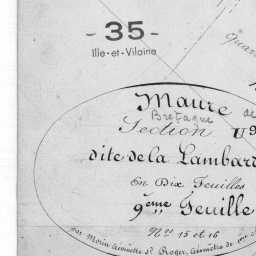 - 35 -
Ille-et-Vilaine
Maure de
Bretagne
Section
dite de la Lambard
En Dix Feuilles
9ème Feuille
Nos 15 et 16
Par Morin Géomètre et Roger, Géomètre de 1ère